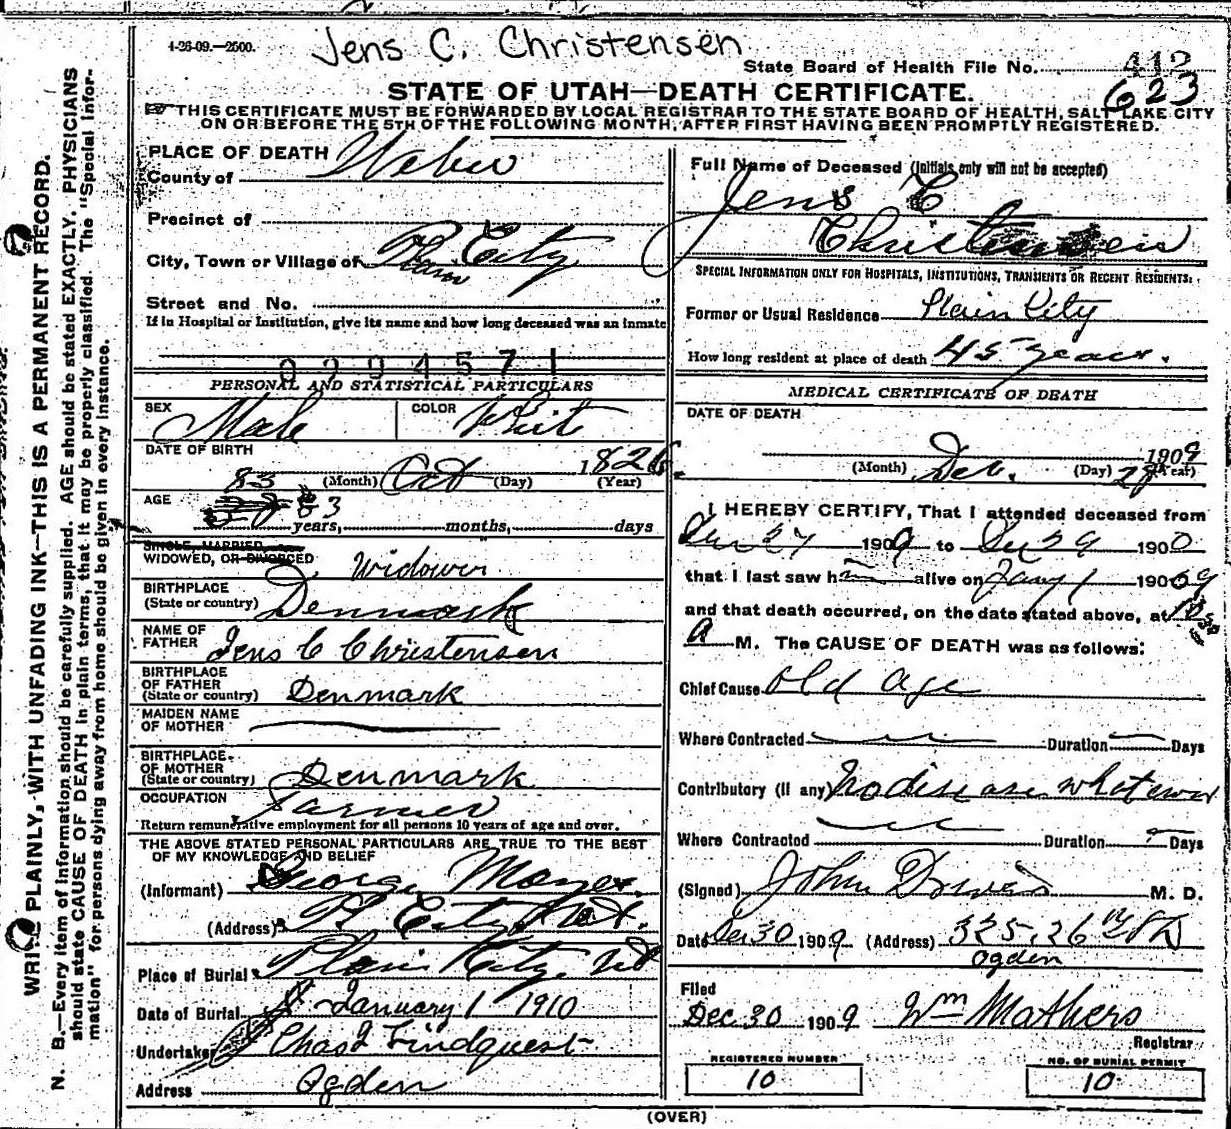 4-26-09.—2500.
Jens C. Christensen
State Board of Health File No. 412
623
STATE OF UTAH—DEATH CERTIFICATE.
THIS CERTIFICATE MUST BE FORWARDED BY LOCAL REGISTRAR TO THE STATE BOARD OF HEALTH, SALT LAKE CITY
ON OR BEFORE THE 5TH OF THE FOLLOWING MONTH, AFTER FIRST HAVING BEEN PROMPTLY REGISTERED.
WRITE PLAINLY, WITH UNFADING INK—THIS IS A PERMANENT RECORD.
N. B.—Every item of information should be carefully supplied. AGE should be stated EXACTLY. PHYSICIANS
should state CAUSE OF DEATH in plain terms, that it may be properly classified. The "Special Infor-
mation" for persons dying away from home should be given in every instance.
PLACE OF DEATH
County of Weber
Precinct of
City, Town or Village of Plain City
Street and No.
If in Hospital or Institution, give its name and how long deceased was an inmate
0294571
PERSONAL AND STATISTICAL PARTICULARS
SEX Male COLOR White
DATE OF BIRTH
83 (Month) Oct (Day) 1826 (Year)
AGE
83 years, months, days
SINGLE, MARRIED,
WIDOWED, OR DIVORCED Widower
BIRTHPLACE
(State or country) Denmark
NAME OF
FATHER Jens C Christensen
BIRTHPLACE
OF FATHER
(State or country) Denmark
MAIDEN NAME
OF MOTHER
BIRTHPLACE
OF MOTHER
(State or country) Denmark
OCCUPATION Farmer
Return remunerative employment for all persons 10 years of age and over.
THE ABOVE STATED PERSONAL PARTICULARS ARE TRUE TO THE BEST
OF MY KNOWLEDGE AND BELIEF
(Informant) George
(Address) Pl City Ut.
Place of Burial Plain City, Ut
Date of Burial January 1 1910
Undertaker Chas J Lindquest
Address Ogden
Full Name of Deceased (Initials only will not be accepted)
Jens C
Christensen
SPECIAL INFORMATION ONLY FOR HOSPITALS, INSTITUTIONS, TRANSIENTS OR RECENT RESIDENTS:
Former or Usual Residence Plain City
How long resident at place of death 45 years.
MEDICAL CERTIFICATE OF DEATH
DATE OF DEATH
1909
(Month) Dec. (Day) (Year)
I HEREBY CERTIFY, That I attended deceased from
Dec 27 1909 to Dec 29 1900
that I last saw h alive on 190
and that death occurred, on the date stated above, at
A M. The CAUSE OF DEATH was as follows:
Chief Cause Old Age
Where Contracted Duration Days
Contributory (if any) No disease whatever
Where Contracted Duration Days
(Signed) John M. D.
Date Dec 30 1909 (Address) 325, 26
Ogden
Filed
Dec. 30 1909 Wm Mathers
Registrar
REGISTERED NUMBER
10
NO. OF BURIAL PERMIT
10
(OVER)